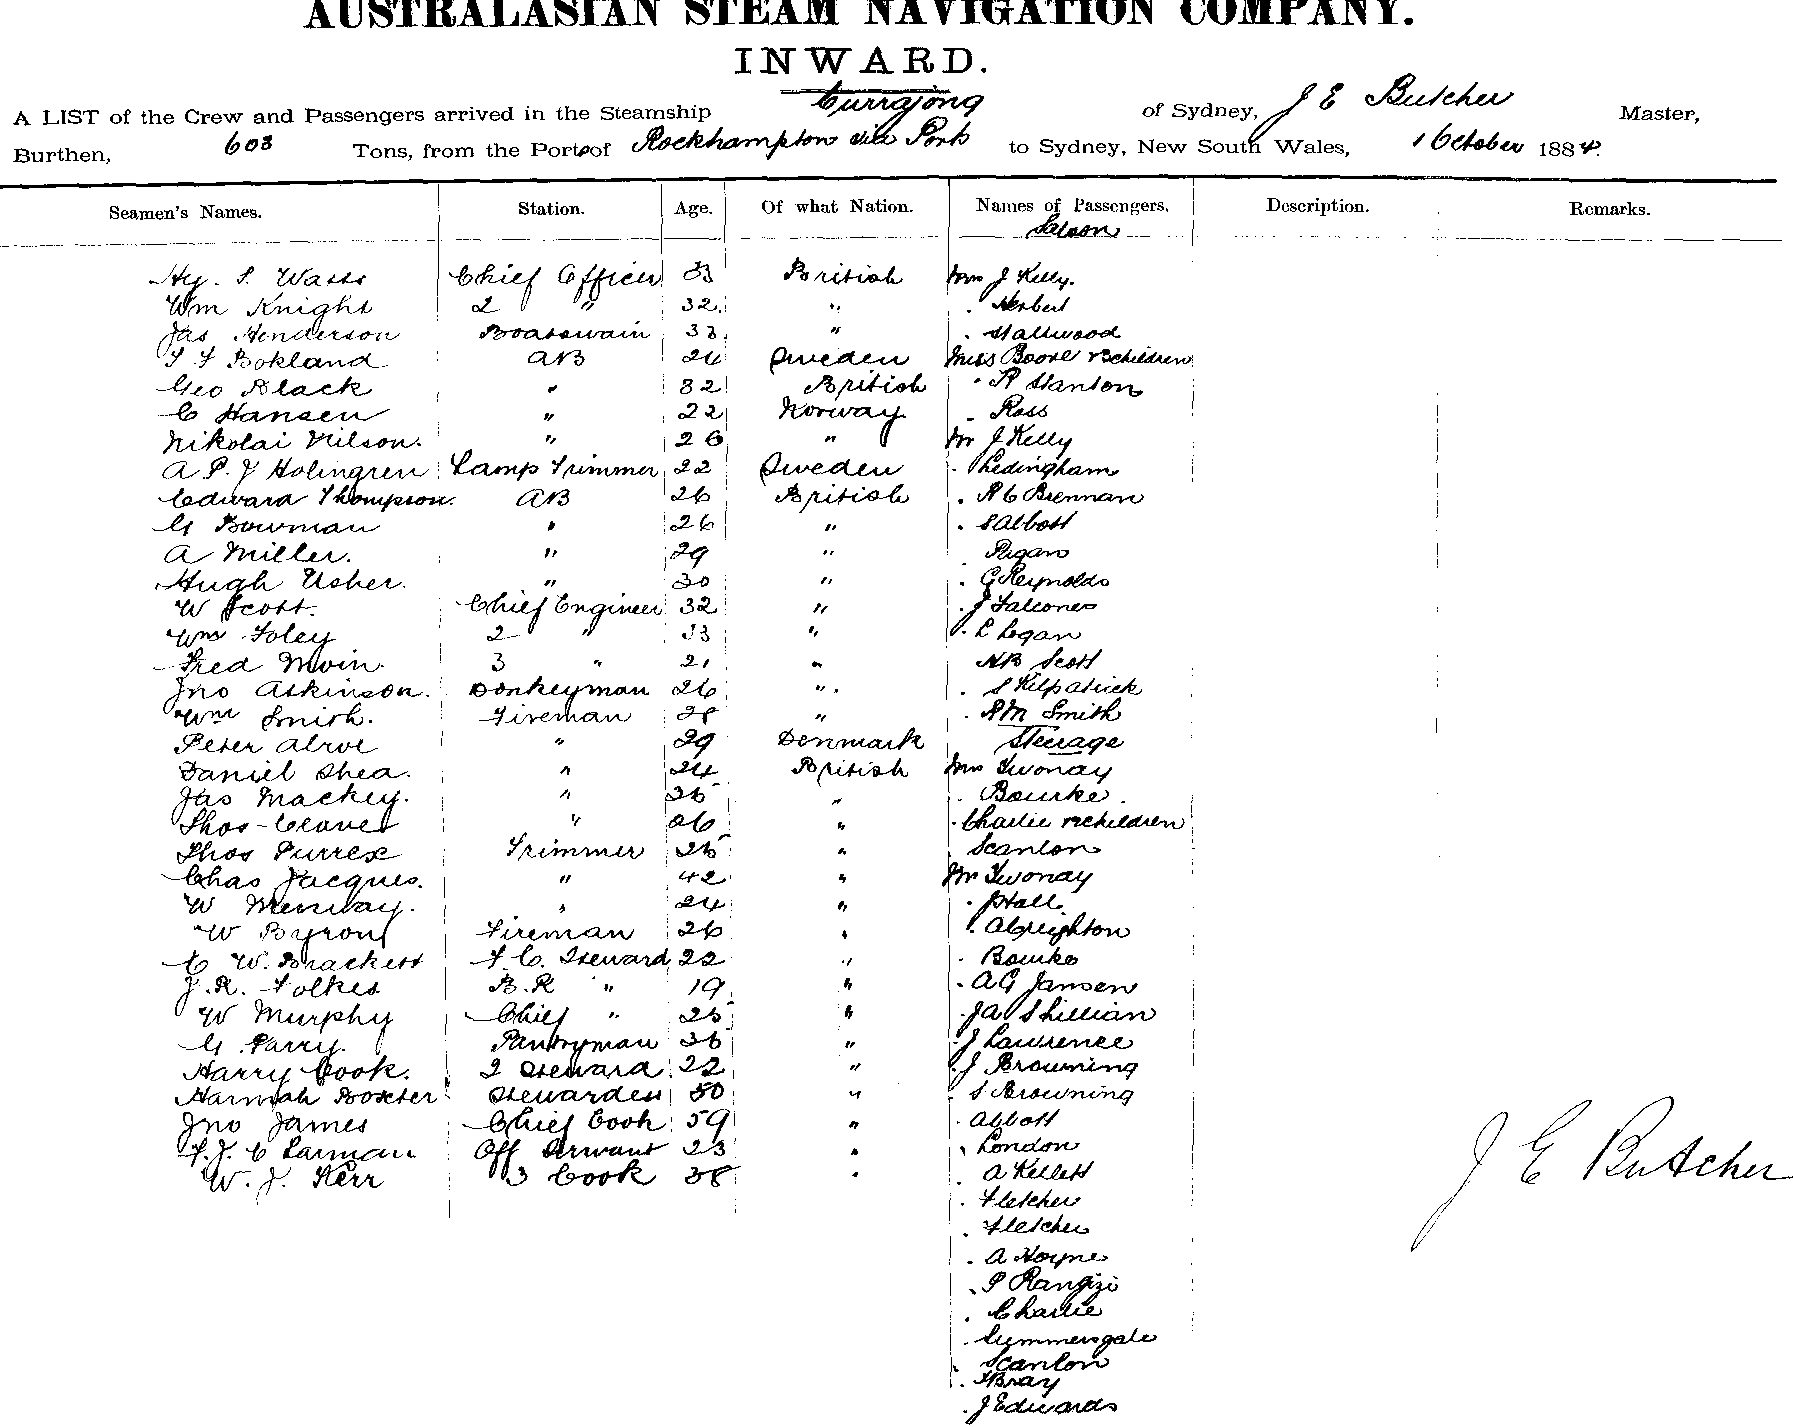 AUSTRALASIAN STEAM NAVIGATION COMPANY.
INWARD.
A LIST of the Crew and Passengers arrived in the Steamship Currajong of Sydney, J E Butcher Master,
Burthen, 603 Tons, from the Port of Rockhampton via Ports to Sydney, New South Wales, 1 October 1884.
Seamen's Names. Station. Age. Of what Nation. Names of Passengers. Description. Remarks.
Saloon
Hy. S. Watts Chief Officer 33 British Mrs J Kelly.
Wm Knight 2 " 32 " " Herbert
Jas Henderson Boatswain 33 " " Stallwood
Bokland AB 26 Sweden Miss Boore & children
Geo Black " 32 British " R Stanton
C Hansen " 22 Norway " Ross
Nikolai Nilson. " 26 " Mr J Kelly
A P. J Holmgren Lamp Trimmer 22 Sweden " Ledingham
Edward Thompson. AB 26 British " R C Brennan
G Bowman " 26 " " S Abbott
A Miller. " 29 " Regan
Hugh Usher. " 30 " " G Reynolds
W Scott. Chief Engineer 32 " " J Falconer
Wm Foley 2 " 33 " " L Logan
Fred Moin. 3 " 21 " HB Scott
Jno Atkinson. Donkeyman 26 " " S Kilpatrick
Wm Smith. Fireman 28 " " RM Smith
Peter " 29 Denmark Steerage
Daniel Shea. " 24 British Mrs Twonay
Jas Mackey. " 25 " " Bourke
Thos Cleaver " 26 " " Charlie & children
Thos Purrex Trimmer 25 " Scanlon
Chas Jacques. " 42 " Mr Twonay
W " 24 " " J Hall.
W Byron Fireman 26 " " A Creighton
C W. Brackett F. C. Steward 22 " " Bourke
J. R. Folkes B. R " 19 " " A G Jansen
W Murphy Chief " 25 " " J A Shillian
G Parry. Pantryman 36 " " J Lawrence
Harry Cook. 2 Steward 22 " " J Browning
Hannah Boxter Stewardess 50 " " S Browning
Jno James Chief Cook 59 " " Abbott
F. J. C Larman Off Servant 23 " " London
W. J. Kerr 3 Cook 38 " " A Kellett
" Fletcher
" Fletcher
" A Hoyne
" P Rangizi
" Charlie
" Summersgale
" Scanlon
" H Bray
" J Edwards
J E Butcher